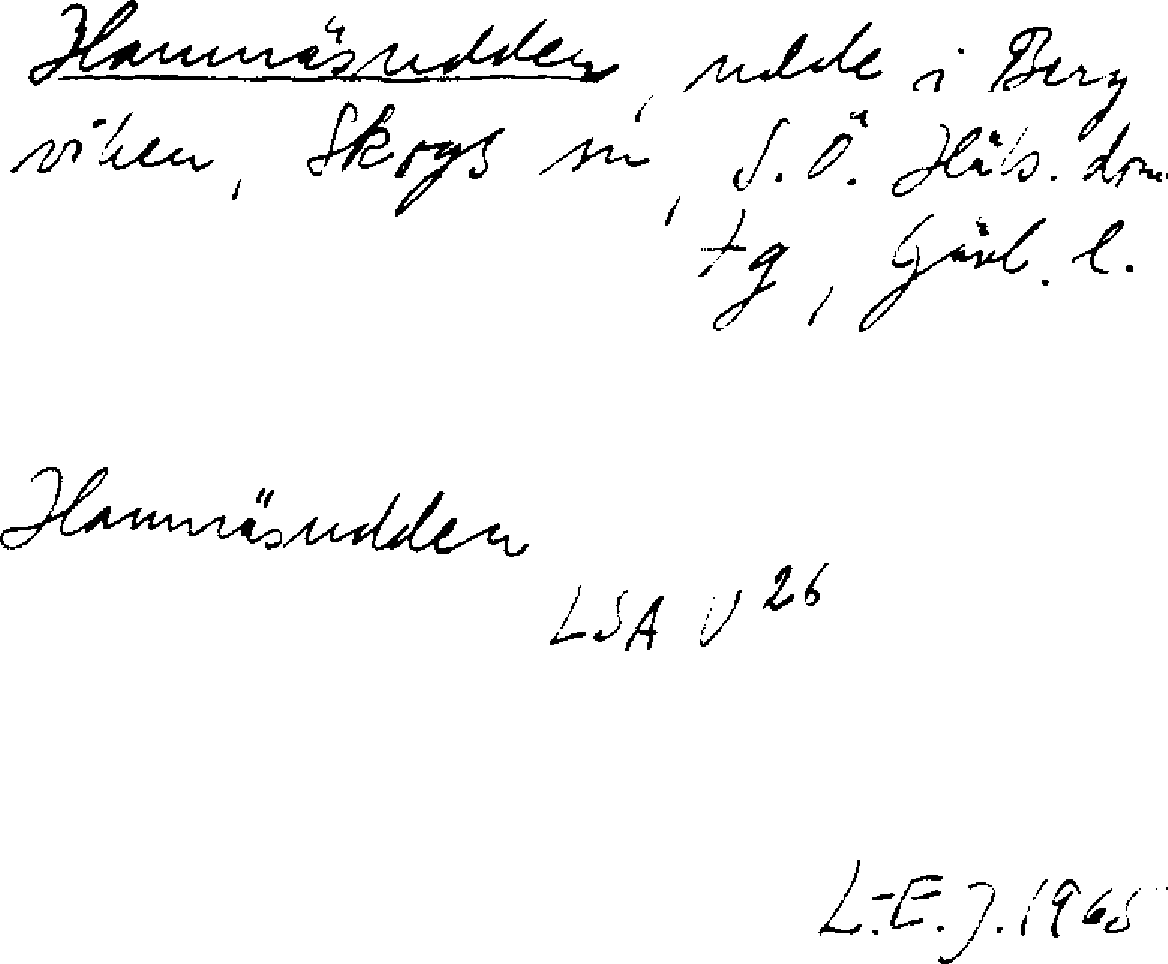 Hamnäsudden, udde i Berg
viken, Skogs sn, S.Ö. Häls. dom
tg, Gävl. l.
Hamnäsudden
LSA V 26
L.-E. J. 1965